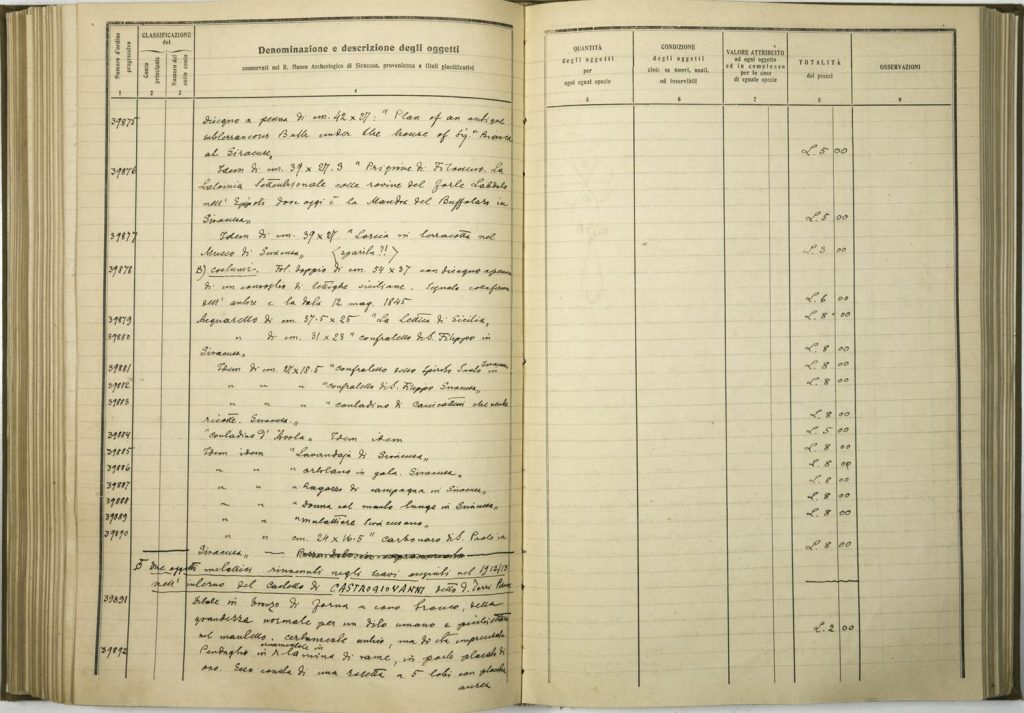 Numero d'ordine progressivo
CLASSIFICAZIONE
del
Conto principale
Numero del sotto conto
Denominazione e descrizione degli oggetti
conservati nel R. Museo Archeologico di Siracusa, provenienza e titoli giustificativi
1 2 3 4
39875 Disegno a penna di cm. 42 x 27: "Plan of an antique
subterraneous Bath under the house of Sig.
at Siracusa„
39876 Idem di cm. 39 x 27.3 " Prigione di Filosseno. La
Latomia Settentrionale colle rovine del forte Labdalo
nell' Epipoli dove oggi è la Mandra del Buffolaro in
Siracusa„
39877 Idem di cm. 39 x 27 " in terracotta nel
Museo di Siracusa„ (sparita?!)
39878 B) Costumi. Fol. doppio di cm. 54 x 37 con disegno a penna
di un convoglio di lettighe siciliane. Segnato
dell' autore e la data 12 mag. 1845
39879 Acquarello di cm. 37.5 x 25 "La Lettica di Sicilia„
39880 " di cm. 31 x 23 " confratello di S. Filippo in
Siracusa„
39881 Idem di cm. 27 x 18.5 "confratello dello Spirito Santo in Siracusa
39882 " " " "confratello di S. Filippo Siracusa„
39883 " " " "contadino di Canicattini che vende
ricotte. Siracusa.„
39884 "contadino d'Avola„ Idem idem
39885 Idem idem "Lavandaja di Siracusa„
39886 " " "ortolano in gala. Siracusa„
39887 " " "Ragazzo di campagna in Siracusa„
39888 " " "Donna col manto lungo in Siracusa„
39889 " " "Mulattiere Siracusano„
39890 " " cm. 24 x 16.5 " carbonaro di S. Paolo in
Siracusa„
Due oggetti metallici rinvenuti negli scavi eseguiti nel 1912/13
nell' interno del Castello di CASTROGIOVANNI detto
39891 Ditale in bronzo di forma a cono tronco, della
grandezza normale per un dito umano e
nel mantello. certamente antico, ma di età imprecisata
39892 Pendaglio ornamentale in lamina di rame, in parte placcato di
oro. Esso consta di una rosetta a 5 lobi con
aurea
QUANTITÀ
degli oggetti
per
ogni egual specie
CONDIZIONE
degli oggetti
cioè: se nuovi, usati,
od inservibili
VALORE ATTRIBUITO
ad ogni oggetto
ed in complesso
per le cose
di eguale specie
TOTALITÀ
dei prezzi
OSSERVAZIONI
5 6 7 8 9
L. 5 00
L. 5 00
L. 3 00
L. 6 00
L. 8 00
L. 8 00
L. 8 00
L. 8 00
L. 8 00
L. 5 00
L. 8 00
L. 8 00
L. 8 00
L. 8 00
L. 8 00
L. 8 00
L. 2 00